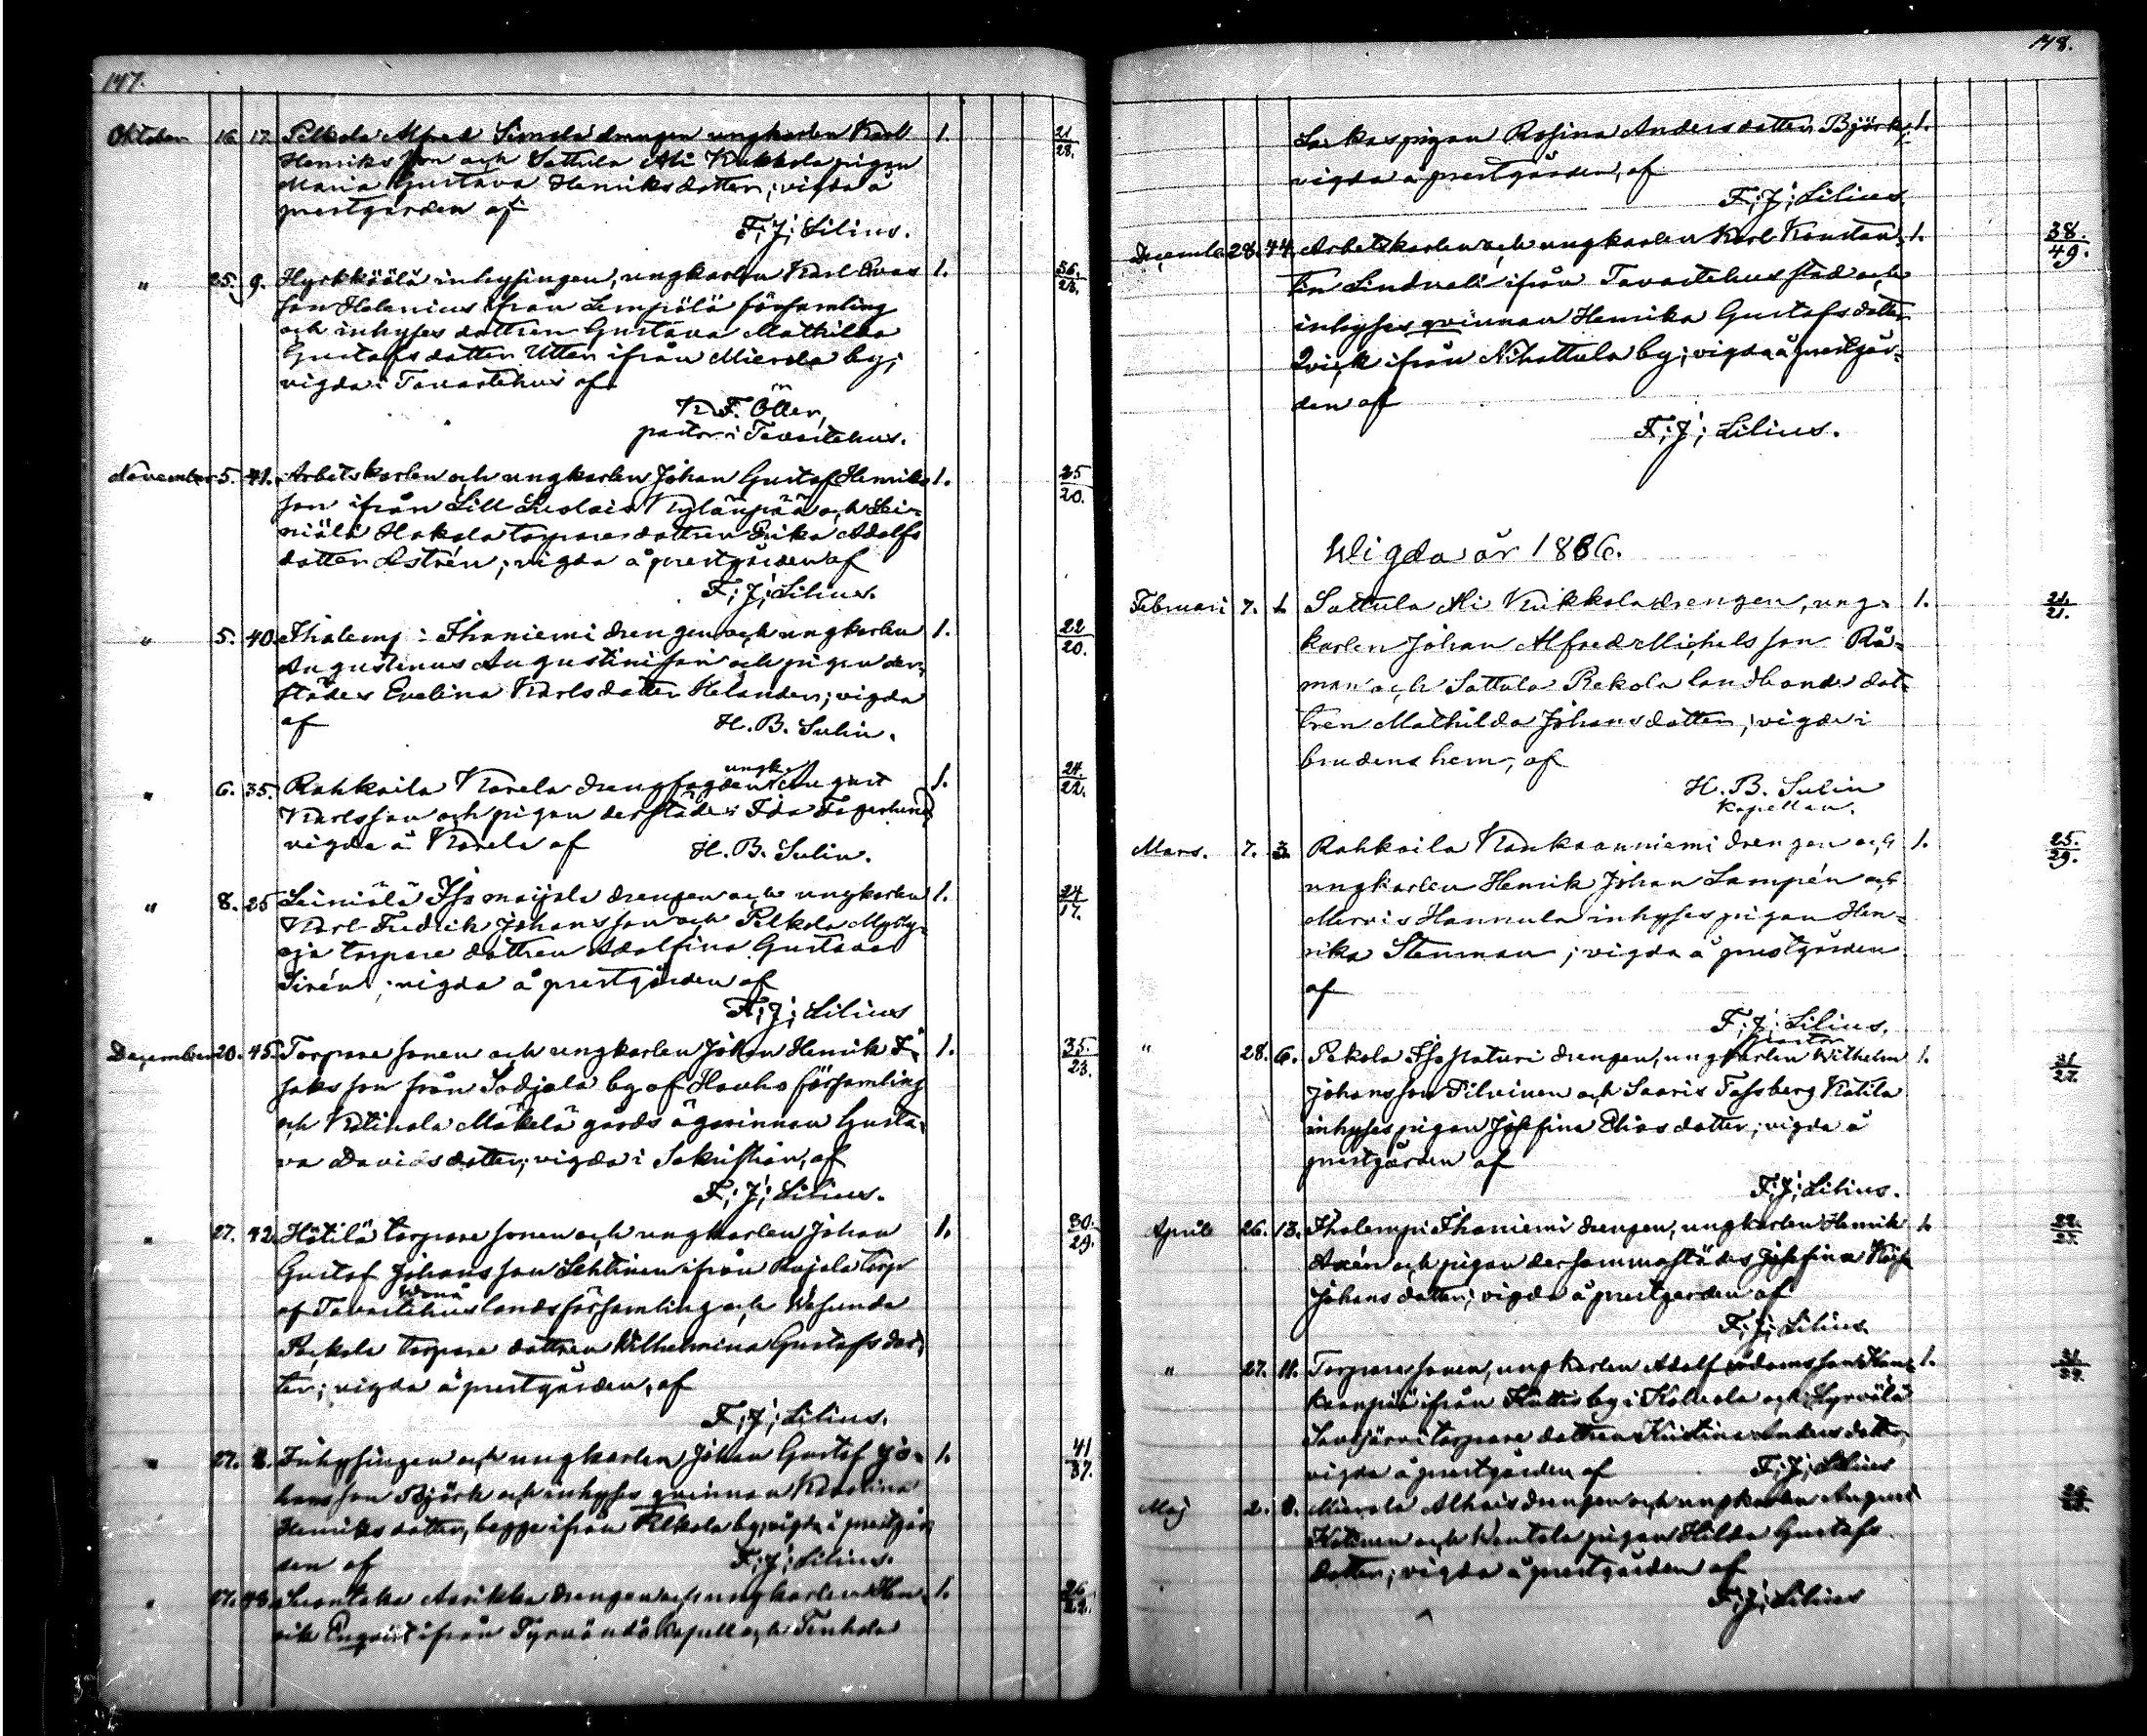 147.
Oktober 16. 17. Pelkola Alfred Simola drengen ungkarlen Karl 1. 21/28.
Henriksson och Sattula Ali Kukkola pigan
Maria Gustava Henriksdotter; vigda å
prestgården af
F; J; Lilius.
" 25. 9. Hyrkkölä inhysingen, ungkarlen Karl Evas 1. 36./23.
son Helenius ifrån Lempälä församling
och inhyses dottren Gustava Mathilda
Gustafsdotter Utter ifrån Mierola by;
vigda i Tavastehus af
K. F. Öller,
pastor i Tavastehus.
November 5. 41. Arbetskarlen och ungkarlen Johan Gustaf Henriks 1. 25/20.
son ifrån Lill Luolais Kylänpää och Lei-
niälä Hakola torpare dottren Erika Adolfs
dotter Astrén; vigda å prestgården af
F; J; Lilius.
" 5. 40. Ihalemp: Ihaniemi drengen och ungkarlen 1. 22/20.
Augustinus Augustinisson och pigan der-
städes Evelina Karlsdotter Helander; vigda
af H. B. Sulin.
" 6. 35. Rahkoila Karela drengfogden ungk. August 1. 24./22.
Karlsson och pigan derstädes Ida Fagerlund
vigda å Karela af H. B. Sulin.
" 8. 25 Leiniälä Iso maijala drengen och ungkarlen 1. 24/17.
Karl Fredrik Johansson och Pelkola Mylly-
oja torpare dottren Adolfina Gustava
Sirén; vigda å prestgården af
F; J; Lilius
December 20. 45. Torpare sonen och ungkarlen Johan Henrik I- 1. 35./23.
saksson från Sodjala by af Hauho församling
och Katinala Mäkelä gårds ägarinnan Gusta-
va Davidsdotter; vigda i Sakristian, af
F; J; Lilius.
" 27. 42. Hätilä torpare sonen och ungkarlen Johan 1. 30./29.
Gustaf Johansson Lehtinen ifrån Rajala torp
af Tavastehus landsförsamling och Wesunda
Pekola torpare dottren Wilhelmina Gustafsdot-
ter; vigda å prestgården, af
F; J; Lilius.
" 27. 8. Inhysingen och ungkarlen Johan Gustaf Jo- 1. 41/37.
hansson Björk och inhyses qvinnan Karolina
Henriksdotter, begge ifrån Pelkola by, vigda å prestgår
den af F; J; Lilius.
" 27. 43. Luontaka Anrikka drengen och ungkarlen Hen- 1. 26/22.
rik Enqvist ifrån Tyrvändö kapell och Tenhola
148.
Laikas pigan Rosina Andersdotter Björk, 1.
vigda å prestgården, af
F; J; Lilius
December 28. 44. Arbetskarlen och ungkarlen Karl Konstan- 1. 38./49.
tin Lindvall ifrån Tavastehus stad och
inhyses qvinnan Henrika Gustafsdotter
Qvick ifrån Nihattula by; vigda å prestgår-
den af
F; J; Lilius.
Wigda år 1886.
Februari 7. 1. Sattula Ali Kukkola drengen, ung- 1. 21./21.
karlen Johan Alfred Michelsson Rå-
man och Sattula Rekola landbonde dot-
tren Mathilda Johansdotter; vigda i
brudens hem, af
H. B. Sulin
kapellan.
Mars. 7. 3. Rahkoila Kankaanniemi drengen och 1. 25./29.
ungkarlen Henrik Johan Lampén och
Mervis Hannula inhyses pigan Hen-
rika Stenman; vigda å prestgården
af
F; J; Lilius.
pastor
" 28. 6. Pekola Iso paturi drengen, ungkarlen Wilhelm 1. 31/27.
Johansson Pilvinen och Saaris Tassberg Kotila
inhyses pigan Josefina Eliasdotter; vigda å
prestgården af
F; J; Lilius.
April 26. 13. Ihalempi Ihaniemi drengen, ungkarlen Henrik 1.
Axén och pigan dersammastädes Josefina
Johansdotter; vigda å prestgården af
F; J; Lilius
" 27. 11. Torpare sonen, ungkarlen Adolf Adamsson Kan- 1.
kaanpää ifrån Küttis by i Kalvola och Lyrvälä
Savijärvi torpare dottren Kristina Andersdotter,
vigda å prestgården af F; J; Lilius
Maj 2. 8. Mierola Alhais drengen och ungkarlen August
Kotinen och Wentola pigan Hilda Gustafs
dotter; vigda å prestgården af
F; J; Lilius